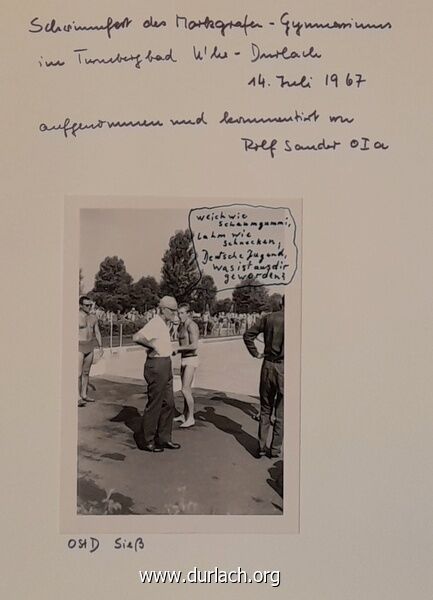 Schwimmfest des Markgrafen-Gymnasiums
im Turmbergbad K'he-Durlach
14. Juli 1967
aufgenommen und kommentiert von
Rolf Sander OIa
weich wie
Schaumgummi,
Lahm wie
Schnecken,
Deutsche Jugend,
was ist aus dir
geworden?
OStD Sieß
www.durlach.org